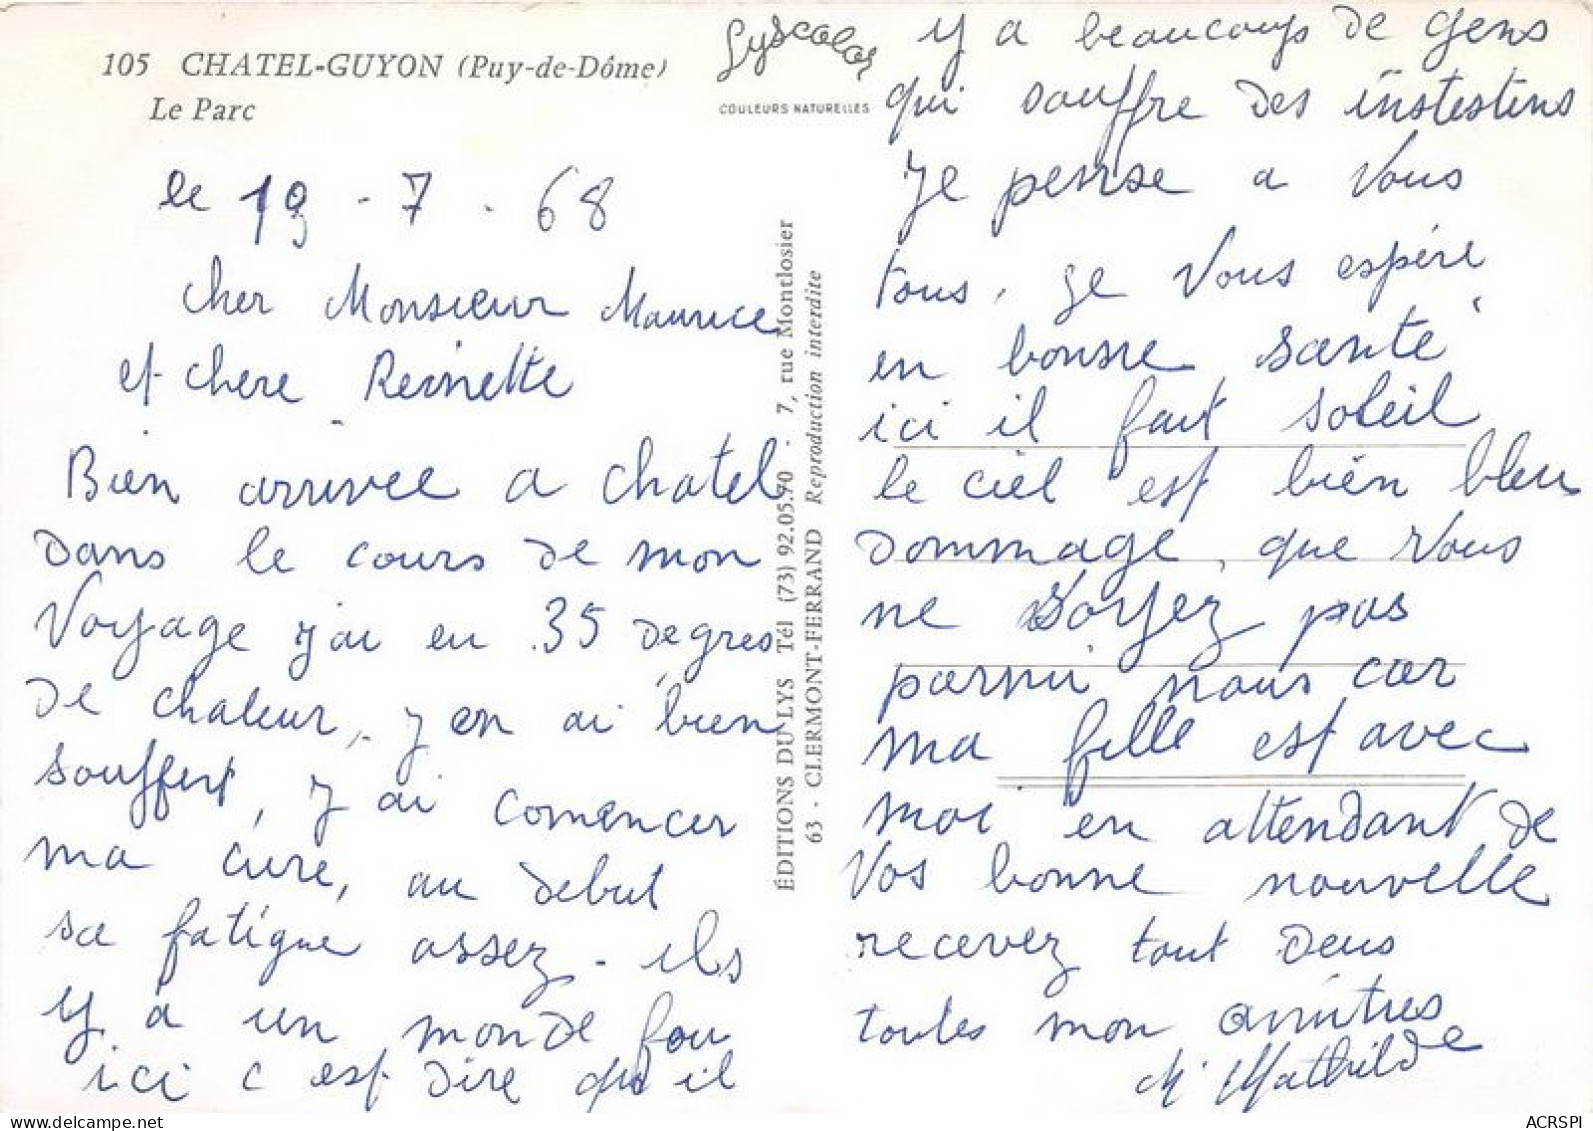 105 CHATEL-GUYON (Puy-de-Dôme)
Le Parc
Lyscolor
COULEURS NATURELLES
le 19 - 7 - 68
cher Monsieur Maurice
et chere Reinette
Bien arrivee a chatel
dans le cours de mon
voyage j'ai eu 35 degres
de chaleur, j en ai bien
souffert, j ai comencer
ma cure, au debut
sa fatigue assez - ils
y a un monde fou
ici c est dire qu il
ÉDITIONS DU LYS Tél (73) 92.05.70 - 7, rue Montlosier
63 - CLERMONT-FERRAND Reproduction interdite
y a beaucoups de gens
qui souffre des instestins
Je pense a vous
tous, je vous espére
en bonne santé
ici il fait soleil
le ciel est bien bleu
dommage, que vous
ne soyez pas
parmi nous car
ma fille est avec
moi en attendant de
vos bonne nouvelle
recevez tout deus
toutes mon amitres
M Mathilde
ACRSPI